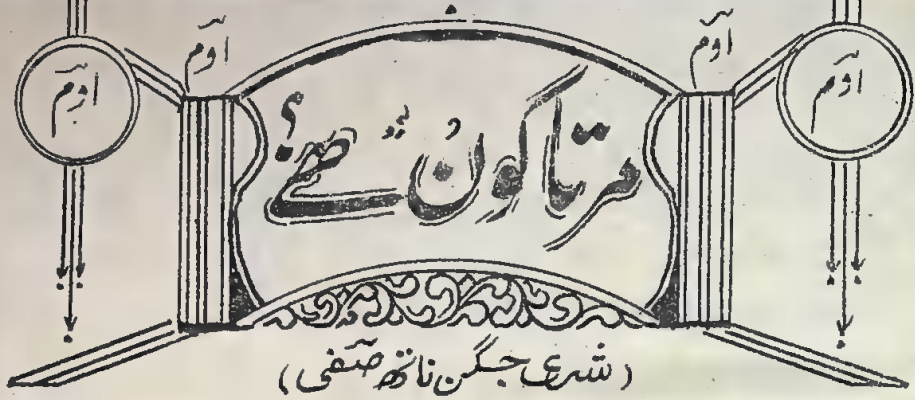 اوم اوم
اوم اوم
مرتا کون ہے؟
(شری جگن ناتھ صفی)